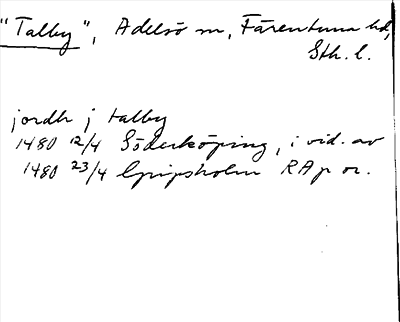 "Talby", Adelsö sn, Färentuna hd,
Sth. l.
jordh j talby
1480 12/4 Söderköping, i vid. av
1480 23/4 Gripsholm RAp or.